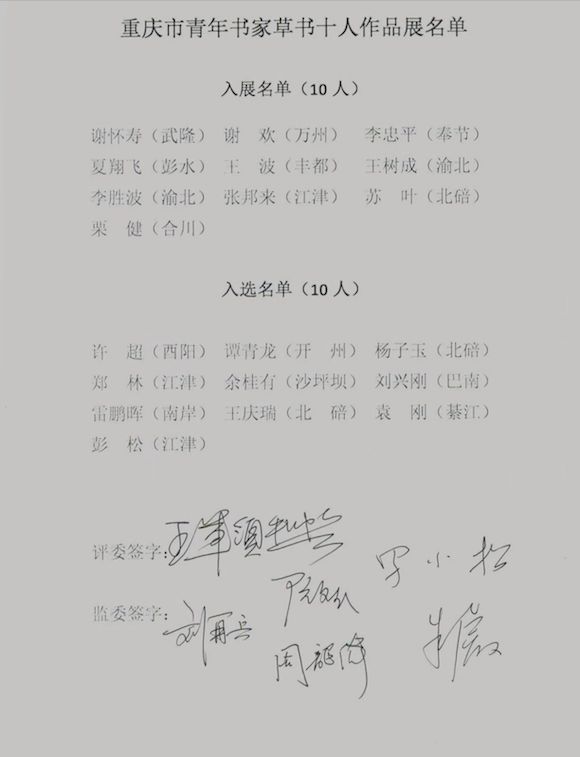 重庆市青年书家草书十人作品展名单
入展名单（10 人）
谢怀寿（武隆） 谢　欢（万州） 李忠平（奉节）
夏翔飞（彭水） 王　波（丰都） 王树成（渝北）
李胜波（渝北） 张邦来（江津） 苏　叶（北碚）
栗　健（合川）
入选名单（10 人）
许　超（酉阳） 谭青龙（开　州） 杨子玉（北碚）
郑　林（江津） 余桂有（沙坪坝） 刘兴刚（巴南）
雷鹏晖（南岸） 王庆瑞（北　碚） 袁　刚（綦江）
彭　松（江津）
评委签字：
监委签字：
刘再兵